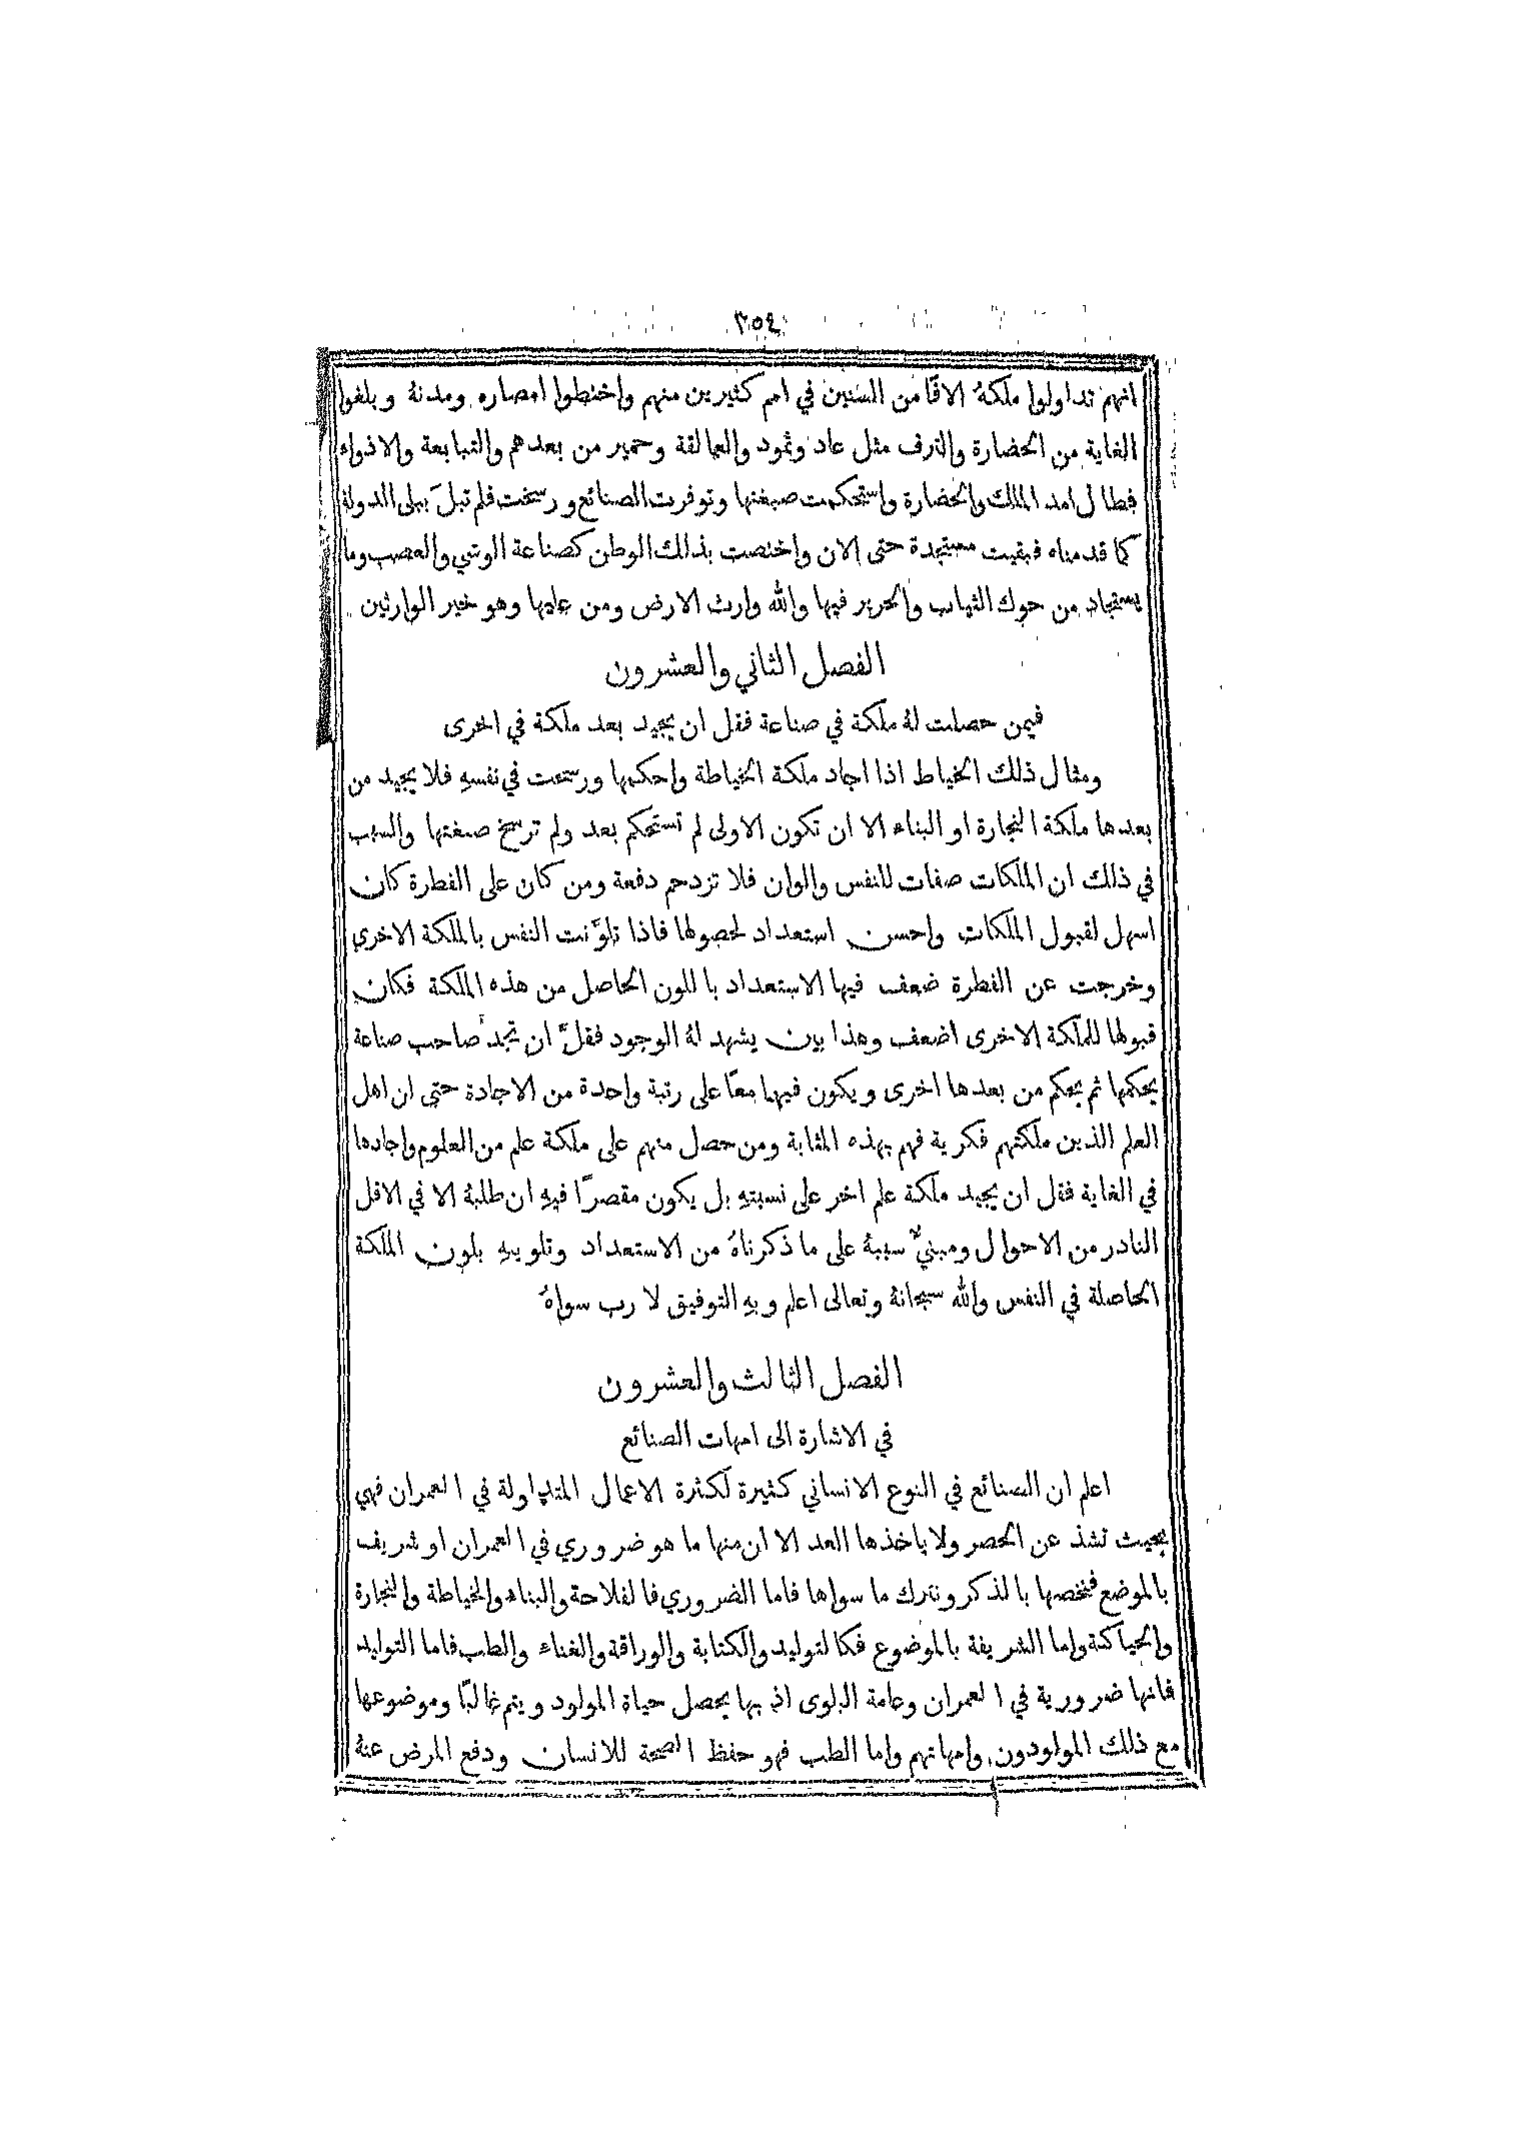 ٣٥٤
انهم تداولوا ملكهُ الافًا من السنين في امم كثيرين منهم واختطوا امصاره ومدنهُ وبلغوا
الغاية من الحضارة والترف مثل عاد وثمود والعمالقة وحمير من بعدهم والتبابعة والاذواء
فطال امد الملك والحضارة واستحكمت صبغتها وتوفرت الصنائع ورسخت فلم تبلَ ببلى الدولة
كما قدمناه فبقيت مستجدة حتى الان واختصت بذلك الوطن كصناعة الوشي والعصب وما
يستجاد من حوك الثياب والحرير فيها والله وارث الارض ومن عليها وهو خير الوارثين
الفصل الثاني والعشرون
فيمن حصلت لهُ ملكة في صناعة فقل ان يجيد بعد ملكة في اخرى
ومثال ذلك الخياط اذا اجاد ملكة الخياطة واحكمها ورسخت في نفسهِ فلا يجيد من
بعدها ملكة النجارة او البناء الا ان تكون الاولى لم تستحكم بعد ولم ترسخ صبغتها والسبب
في ذلك ان الملكات صفات للنفس والوان فلا تزدحم دفعة ومن كان على الفطرة كان
اسهل لقبول الملكات واحسن استعداد لحصولها فاذا تلوَّنت النفس بالملكة الاخرى
وخرجت عن الفطرة ضعف فيها الاستعداد باللون الحاصل من هذه الملكة فكان
قبولها للملكة الاخرى اضعف وهذا بين يشهد لهُ الوجود فقلَّ ان تجد صاحب صناعة
يحكمها ثم يحكم من بعدها اخرى ويكون فيهما معًا على رتبة واحدة من الاجادة حتى ان اهل
العلم الذين ملكتهم فكرية فهم بهذه المثابة ومن حصل منهم على ملكة علم من العلوم واجادها
في الغاية فقل ان يجيد ملكة علم اخر على نسبتهِ بل يكون مقصرًا فيهِ ان طلبهُ الا في الاقل
النادر من الاحوال ومبنيٌّ سببهُ على ما ذكرناهُ من الاستعداد وتلوينهِ بلون الملكة
الحاصلة في النفس والله سبحانهُ وتعالى اعلم وبهِ التوفيق لا رب سواهُ
الفصل الثالث والعشرون
في الاشارة الى امهات الصنائع
اعلم ان الصنائع في النوع الانساني كثيرة لكثرة الاعمال المتداولة في العمران فهي
بحيث تشذ عن الحصر ولا ياخذها العد الا ان منها ما هو ضروري في العمران او شريف
بالموضع فنخصها بالذكر ونترك ما سواها فاما الضروري فالفلاحة والبناء والخياطة والنجارة
والحياكة واما الشريفة بالموضوع فكالتوليد والكتابة والوراقة والغناء والطب فاما التوليد
فانها ضرورية في العمران وعامة البلوى اذ بها يحصل حياة المولود ويتم غالبًا وموضوعها
مع ذلك المولودون وامهاتهم واما الطب فهو حفظ الصحة للانسان ودفع المرض عنهُ